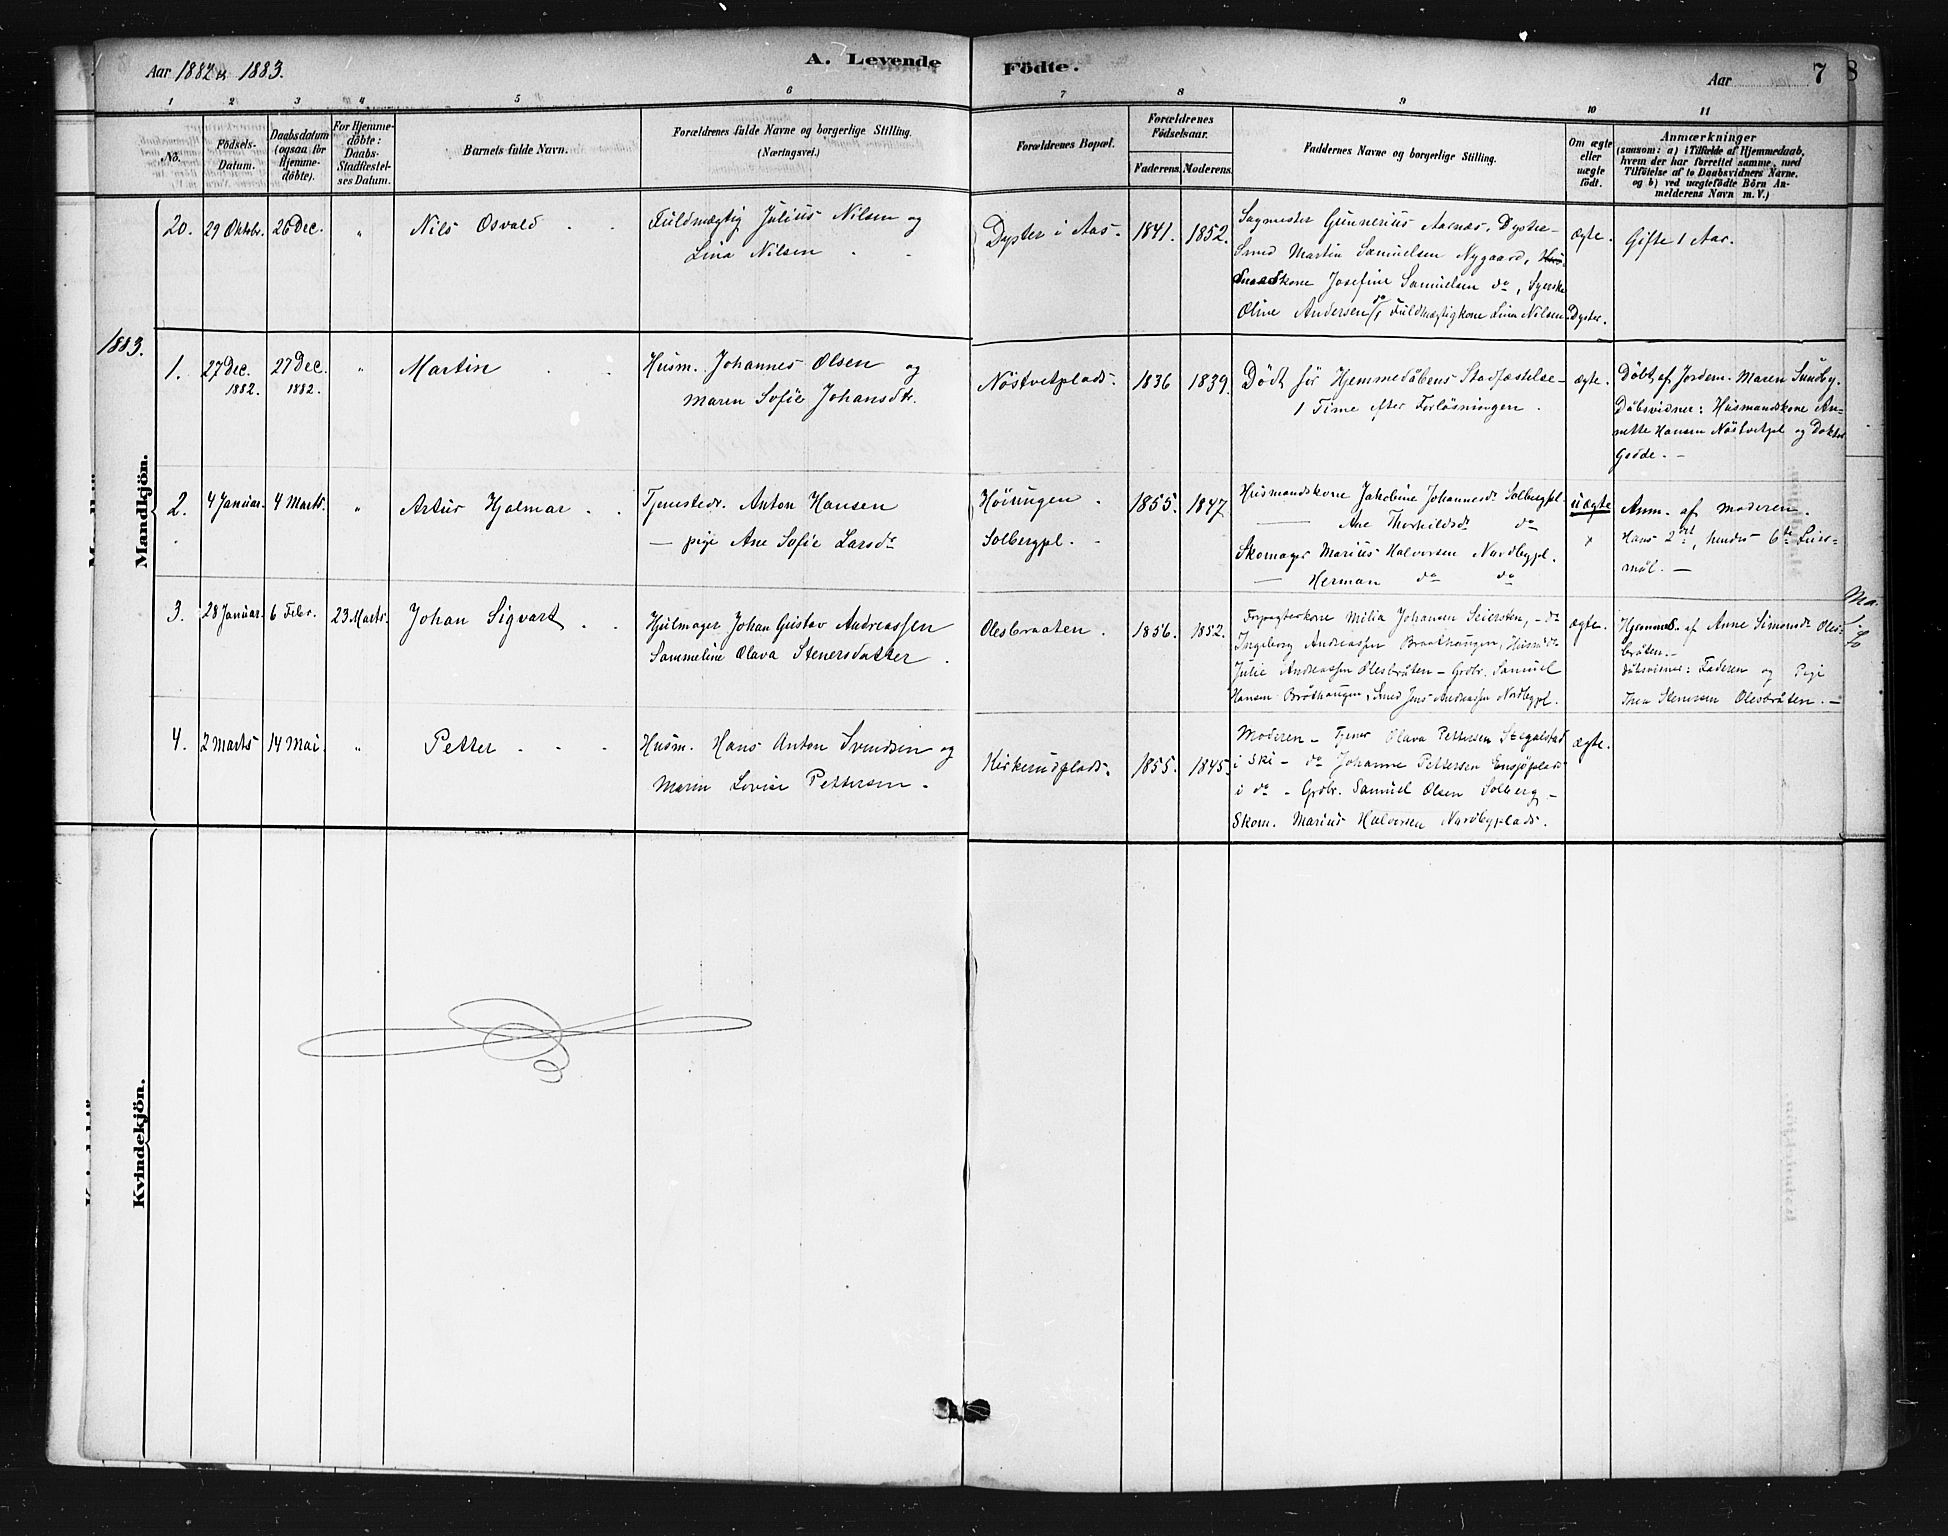 Aar 1882 & 1883.
A. Levende Födte.
Aar 7
8
1 2 3 4 5 6 7 8 9 10 11
No.
Födsels-
Datum.
Daabsdatum
(ogsaa for
Hjemme-
döbte).
For Hjemme-
döbte:
Daabs-
Stadfæstel-
ses Datum.
Barnets fulde Navn.
Forældrenes fulde Navne og borgerlige Stilling.
(Næringsvei.)
Forældrenes Bopæl.
Forældrenes
Födselsaar.
Faderens. Moderens.
Faddernes Navne og borgerlige Stilling.
Om ægte
eller
uægte
födt.
Anmærkninger
(saasom: a) i Tilfælde af Hjemmedaab,
hvem der har forrettet samme, med
Tilföielse af to Daabsvidners Navne,
og b) ved uægtefödte Börn An-
melderens Navn m. V.)
Mandkjön.
20. 29 Oktobr. 26 Dec. " Nils Osvald
Fuldmægtig Julius Nilsen og
Lina Nilsen
Dyster i Aas. 1841. 1852.
Sagmester Gunnerius Aarnæs, Dyster-
Smed Martin Samuelsen Nygaard,
Smedkone Josefine Samuelsen do, Syerske
Oline Andersen do, Fuldmægtigkone Lina Nilsen Dyster.
ægte.
Gifte 1 Aar.
1883.
1. 27 Dec. 1882. 27 Dec. 1882. " Martin
Husm. Johannes Olsen og
Maren Sofie Johansdtr.
Nöstvetplads. 1836 1839.
Dödt för Hjemmedåbens Stadfæstelse-
1 Time efter Forlösningen.
ægte.
Döbt af Jordem. Maren Sundby.
Dåbsvidner: Husmandskone An-
nette Hansen Nöstvetpl og Doktor
Gedde. -
2. 4 Januar. 4 Marts. " Artur Hjalmar
Tjenestedr. Anton Hansen
— pige Ane Sofie Larsdr
Höiungen
Solbergpl.
1855. 1847
Husmandskone Jakobine Johannesdr Solbergpl
— Ane Thorkildsdr do
Skomager Marius Halvorsen Nordbypl.
— Herman do do
uægte
x
Anm. af Moderen.
Hans 2det, hendes 6te Leier-
mål. —
3. 28 Januar. 6 Febr. 23 Marts. Johan Sigvart
Hjulmager Johan Gustav Andreassen
Sammeline Olava Stenersdatter
Olesbraaten. 1856. 1852.
Forpagterkone Milia Johansen Seiersten, - do
Ingeborg Andreassen Braathaugen, Husmdr
Julie Andreassen Olesbråten - Grdbr. Samuel
Hansen Bråthaugen, Smed Jens Andreassen Nordbypl.
ægte.
Hjemmed. af Anne Simonsdr Oles-
bråten.-
Dåbsvidner: Faderen og Pige
Thea Stenersen Olesbråten. —
4. 2 Marts 14 Mai. " Petter
Husm. Hans Anton Svendsen og
Maren Lovise Pettersen
Kirkerudplads. 1855. 1845.
Moderen - Tjener Olava Pettersen Skegelstad
i Ski - do Johanne Pettersen Ensjöplads
i do - Grdbr. Samuel Olsen Solberg -
Skom. Marius Halvorsen Nordbyplads.
ægte.
Kvindekjön.